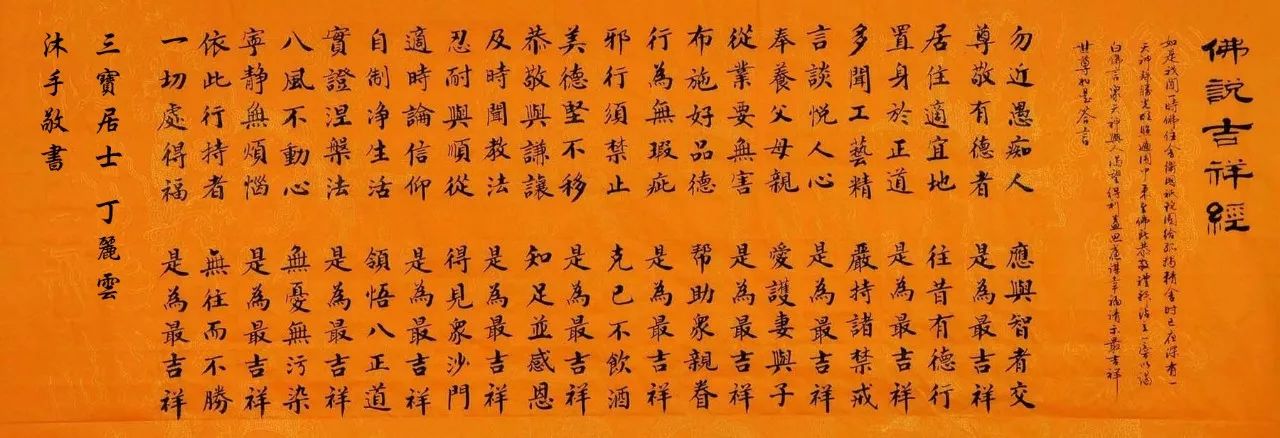 佛說吉祥經
如是我聞一時佛住舍衛國祇陀園給孤獨精舍時已夜深有一
天神殊勝光明照遍園中來至佛所恭敬禮拜站立一旁以偈
白佛言眾天神與人渴望得利益思慮幸福請示最吉祥
世尊如是答言
勿近愚痴人 應與智者交
尊敬有德者 是為最吉祥
居住適宜地 往昔有德行
置身於正道 是為最吉祥
多聞工藝精 嚴持諸禁戒
言談悅人心 是為最吉祥
奉養父母親 愛護妻與子
從業要無害 是為最吉祥
布施好品德 帮助眾親眷
行為無瑕疵 是為最吉祥
邪行須禁止 克己不飲酒
美德堅不移 是為最吉祥
恭敬與謙讓 知足並感恩
及時聞教法 是為最吉祥
忍耐與順從 得見眾沙門
適時論信仰 是為最吉祥
自制净生活 領悟八正道
實證涅槃法 是為最吉祥
八風不動心 無憂無污染
寧静無煩惱 是為最吉祥
依此行持者 無往而不勝
一切處得福 是為最吉祥
三寶居士 丁麗雲
沐手敬書